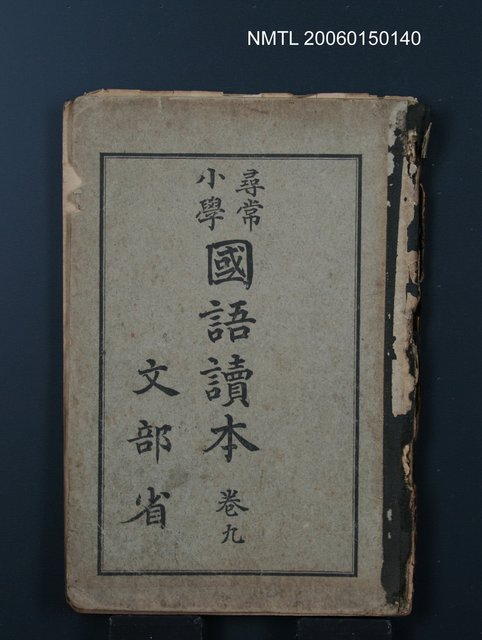 NMTL 20060150140
尋常
小學
國語讀本 卷九
文部省